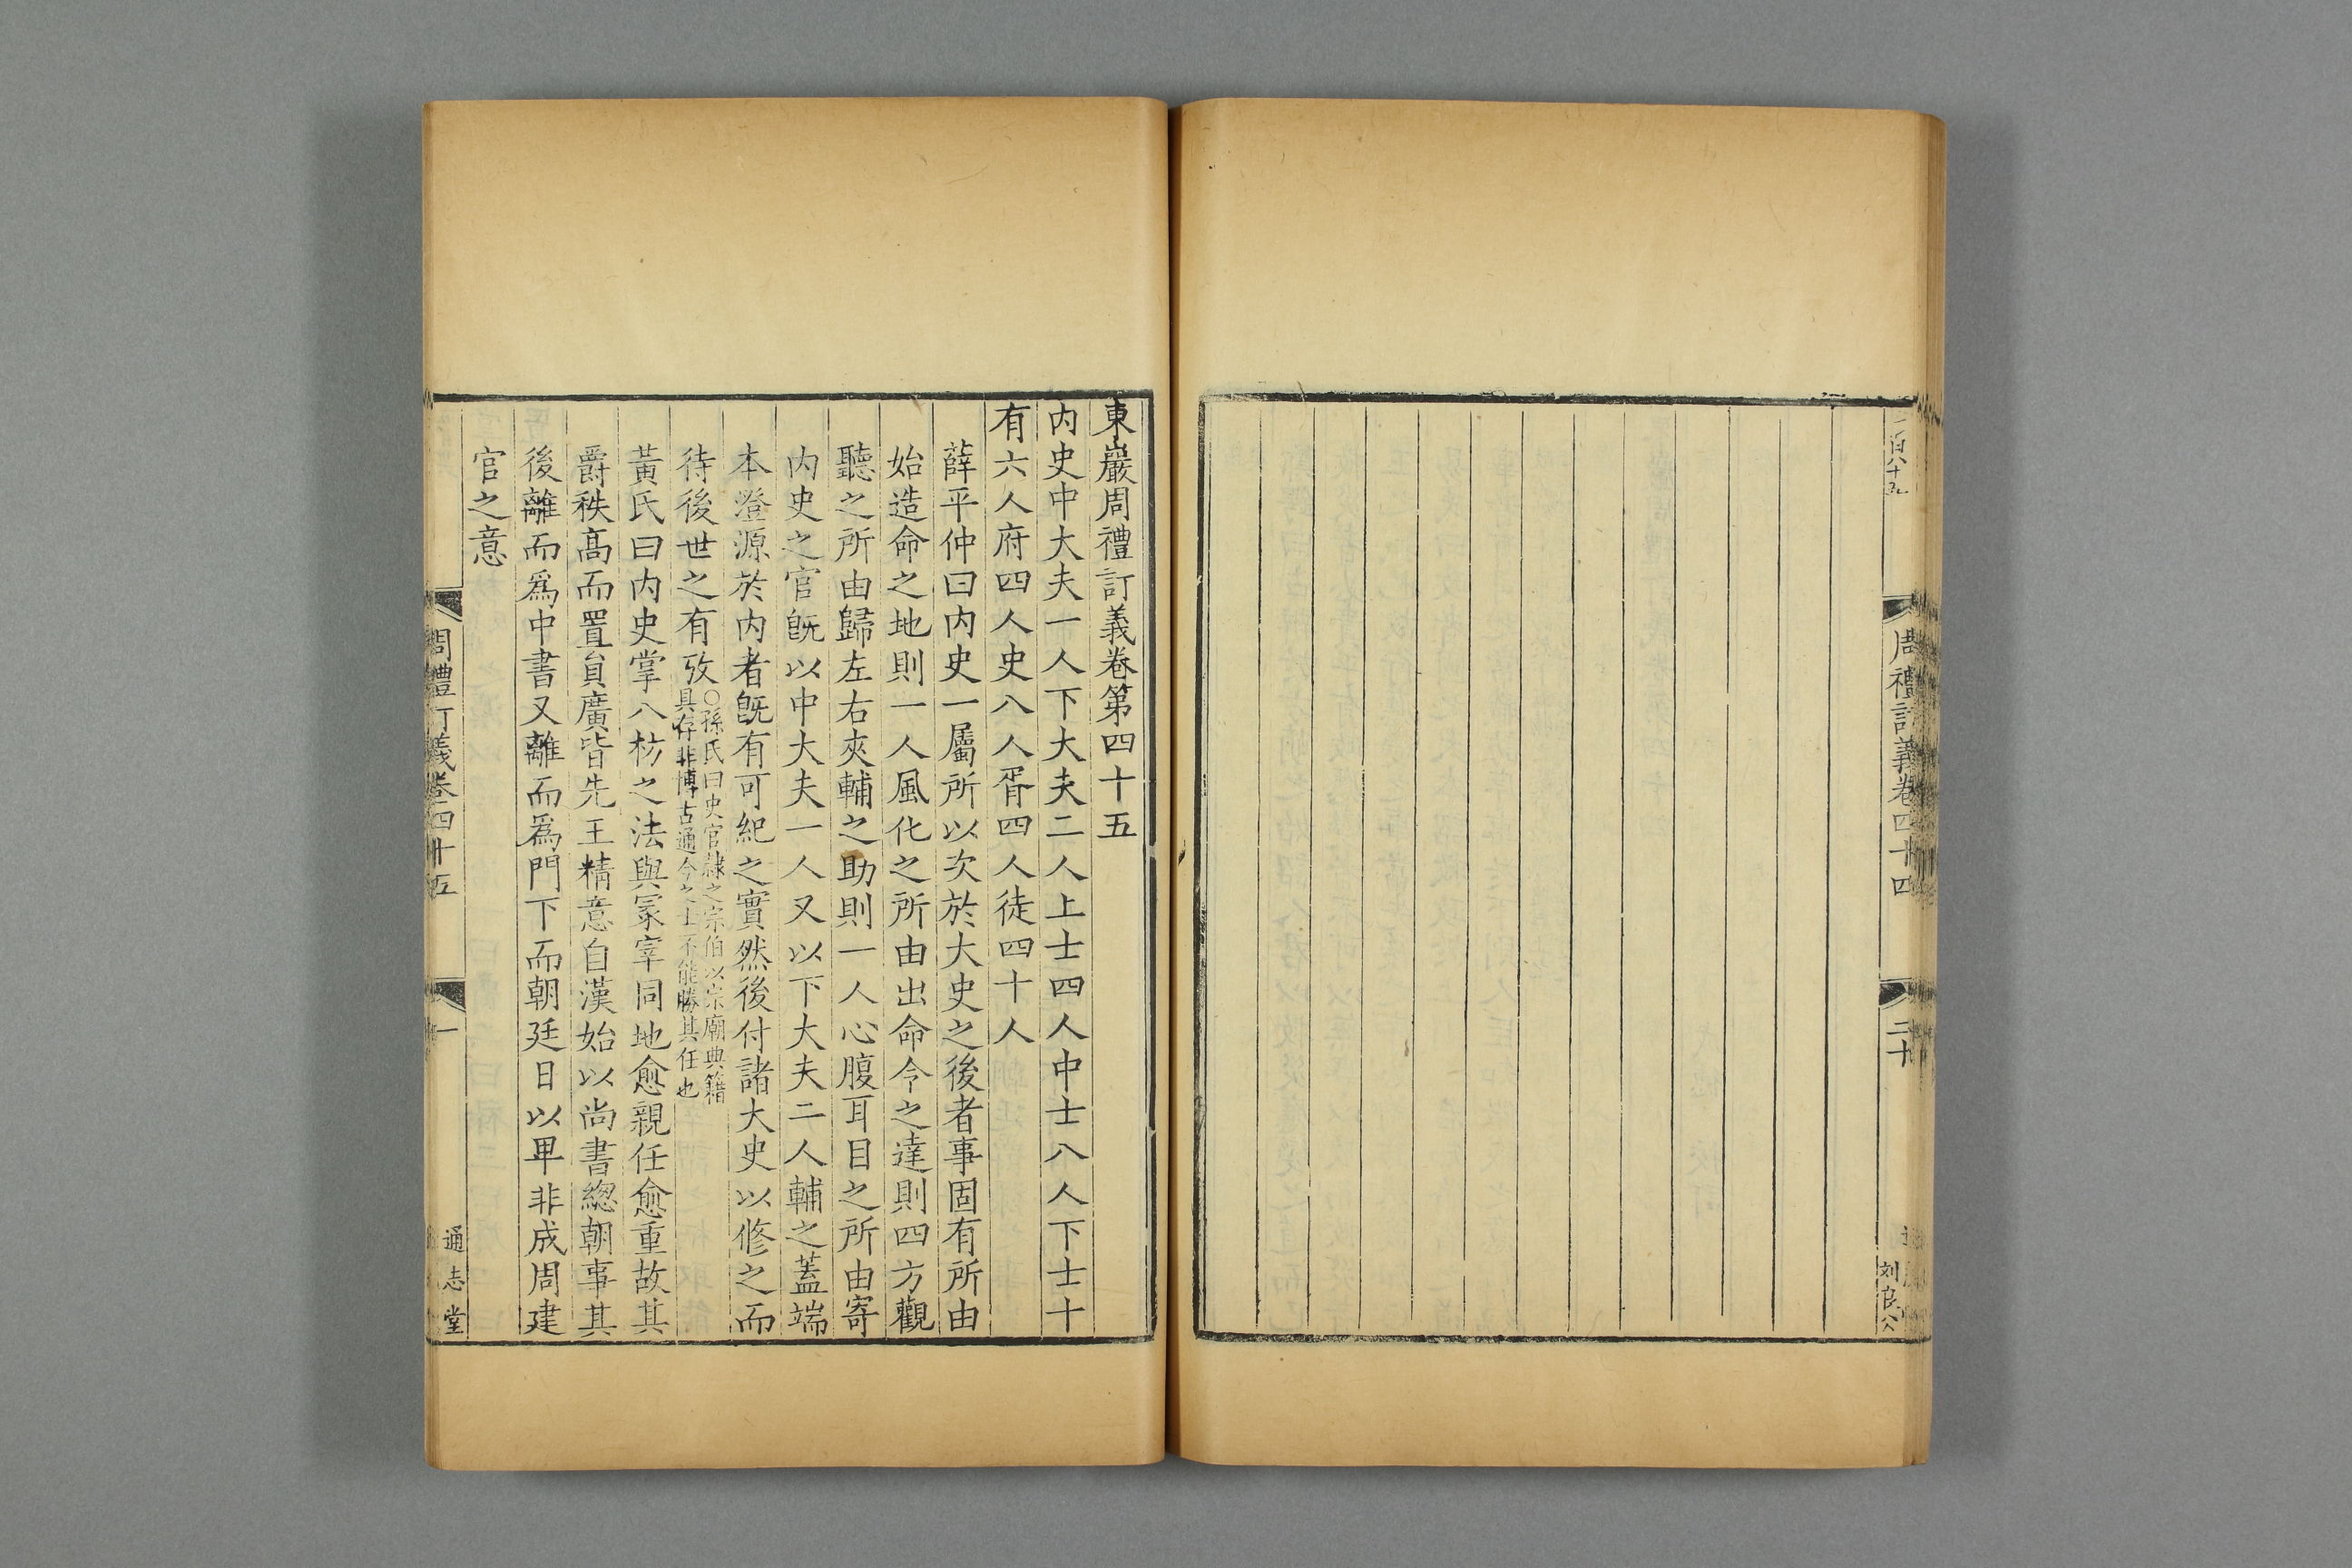 周禮訂義卷四十四
二十
刘良公
東巖周禮訂義卷第四十五
内史中大夫一人下大夫二人上士四人中士八人下士十
有六人府四人史八人胥四人徒四十人
薛平仲曰内史一屬所以次於大史之後者事固有所由
始造命之地則一人風化之所由出命令之達則四方觀
聽之所由歸左右夾輔之助則一人心腹耳目之所由寄
内史之官旣以中大夫一人又以下大夫二人輔之蓋端
本澄源於内者旣有可紀之實然後付諸大史以修之而
待後世之有攷
○孫氏曰史官隸之宗伯以宗廟典籍
具存非博古通今之士不能勝其任也
黃氏曰内史掌八枋之法與冢宰同地愈親任愈重故其
爵秩髙而置貟廣皆先王精意自漢始以尚書緫朝事其
後離而爲中書又離而爲門下而朝廷日以畢非成周建
官之意
周禮訂義卷四十五
一
通志堂